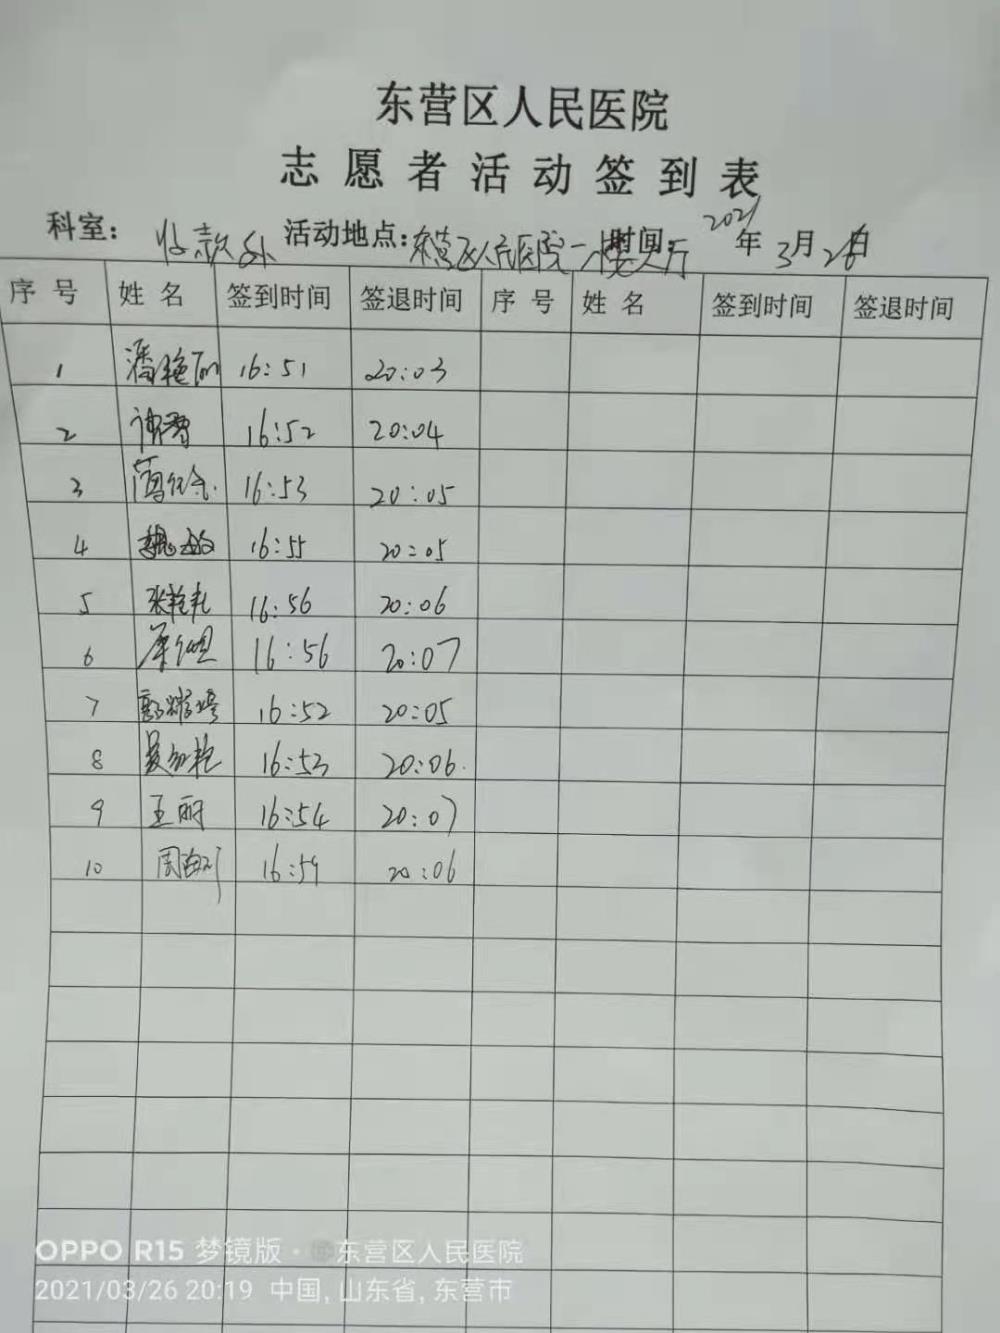 东营区人民医院
志愿者活动签到表
科室： 收款处 活动地点：东营区人民医院一楼大厅 时间： 2021年3月26日
序号 姓名 签到时间 签退时间 序号 姓名 签到时间 签退时间
1 潘艳丽 16:51 20:03
2 16:52 20:04
3 16:53 20:05
4 魏敏 16:55 20:05
5 张艳 16:56 20:06
6 16:56 20:07
7 郭 16:52 20:05
8 16:53 20:06
9 王丽 16:54 20:07
10 周 16:59 20:06
OPPO R15 梦镜版 · 东营区人民医院
2021/03/26 20:19 中国, 山东省, 东营市